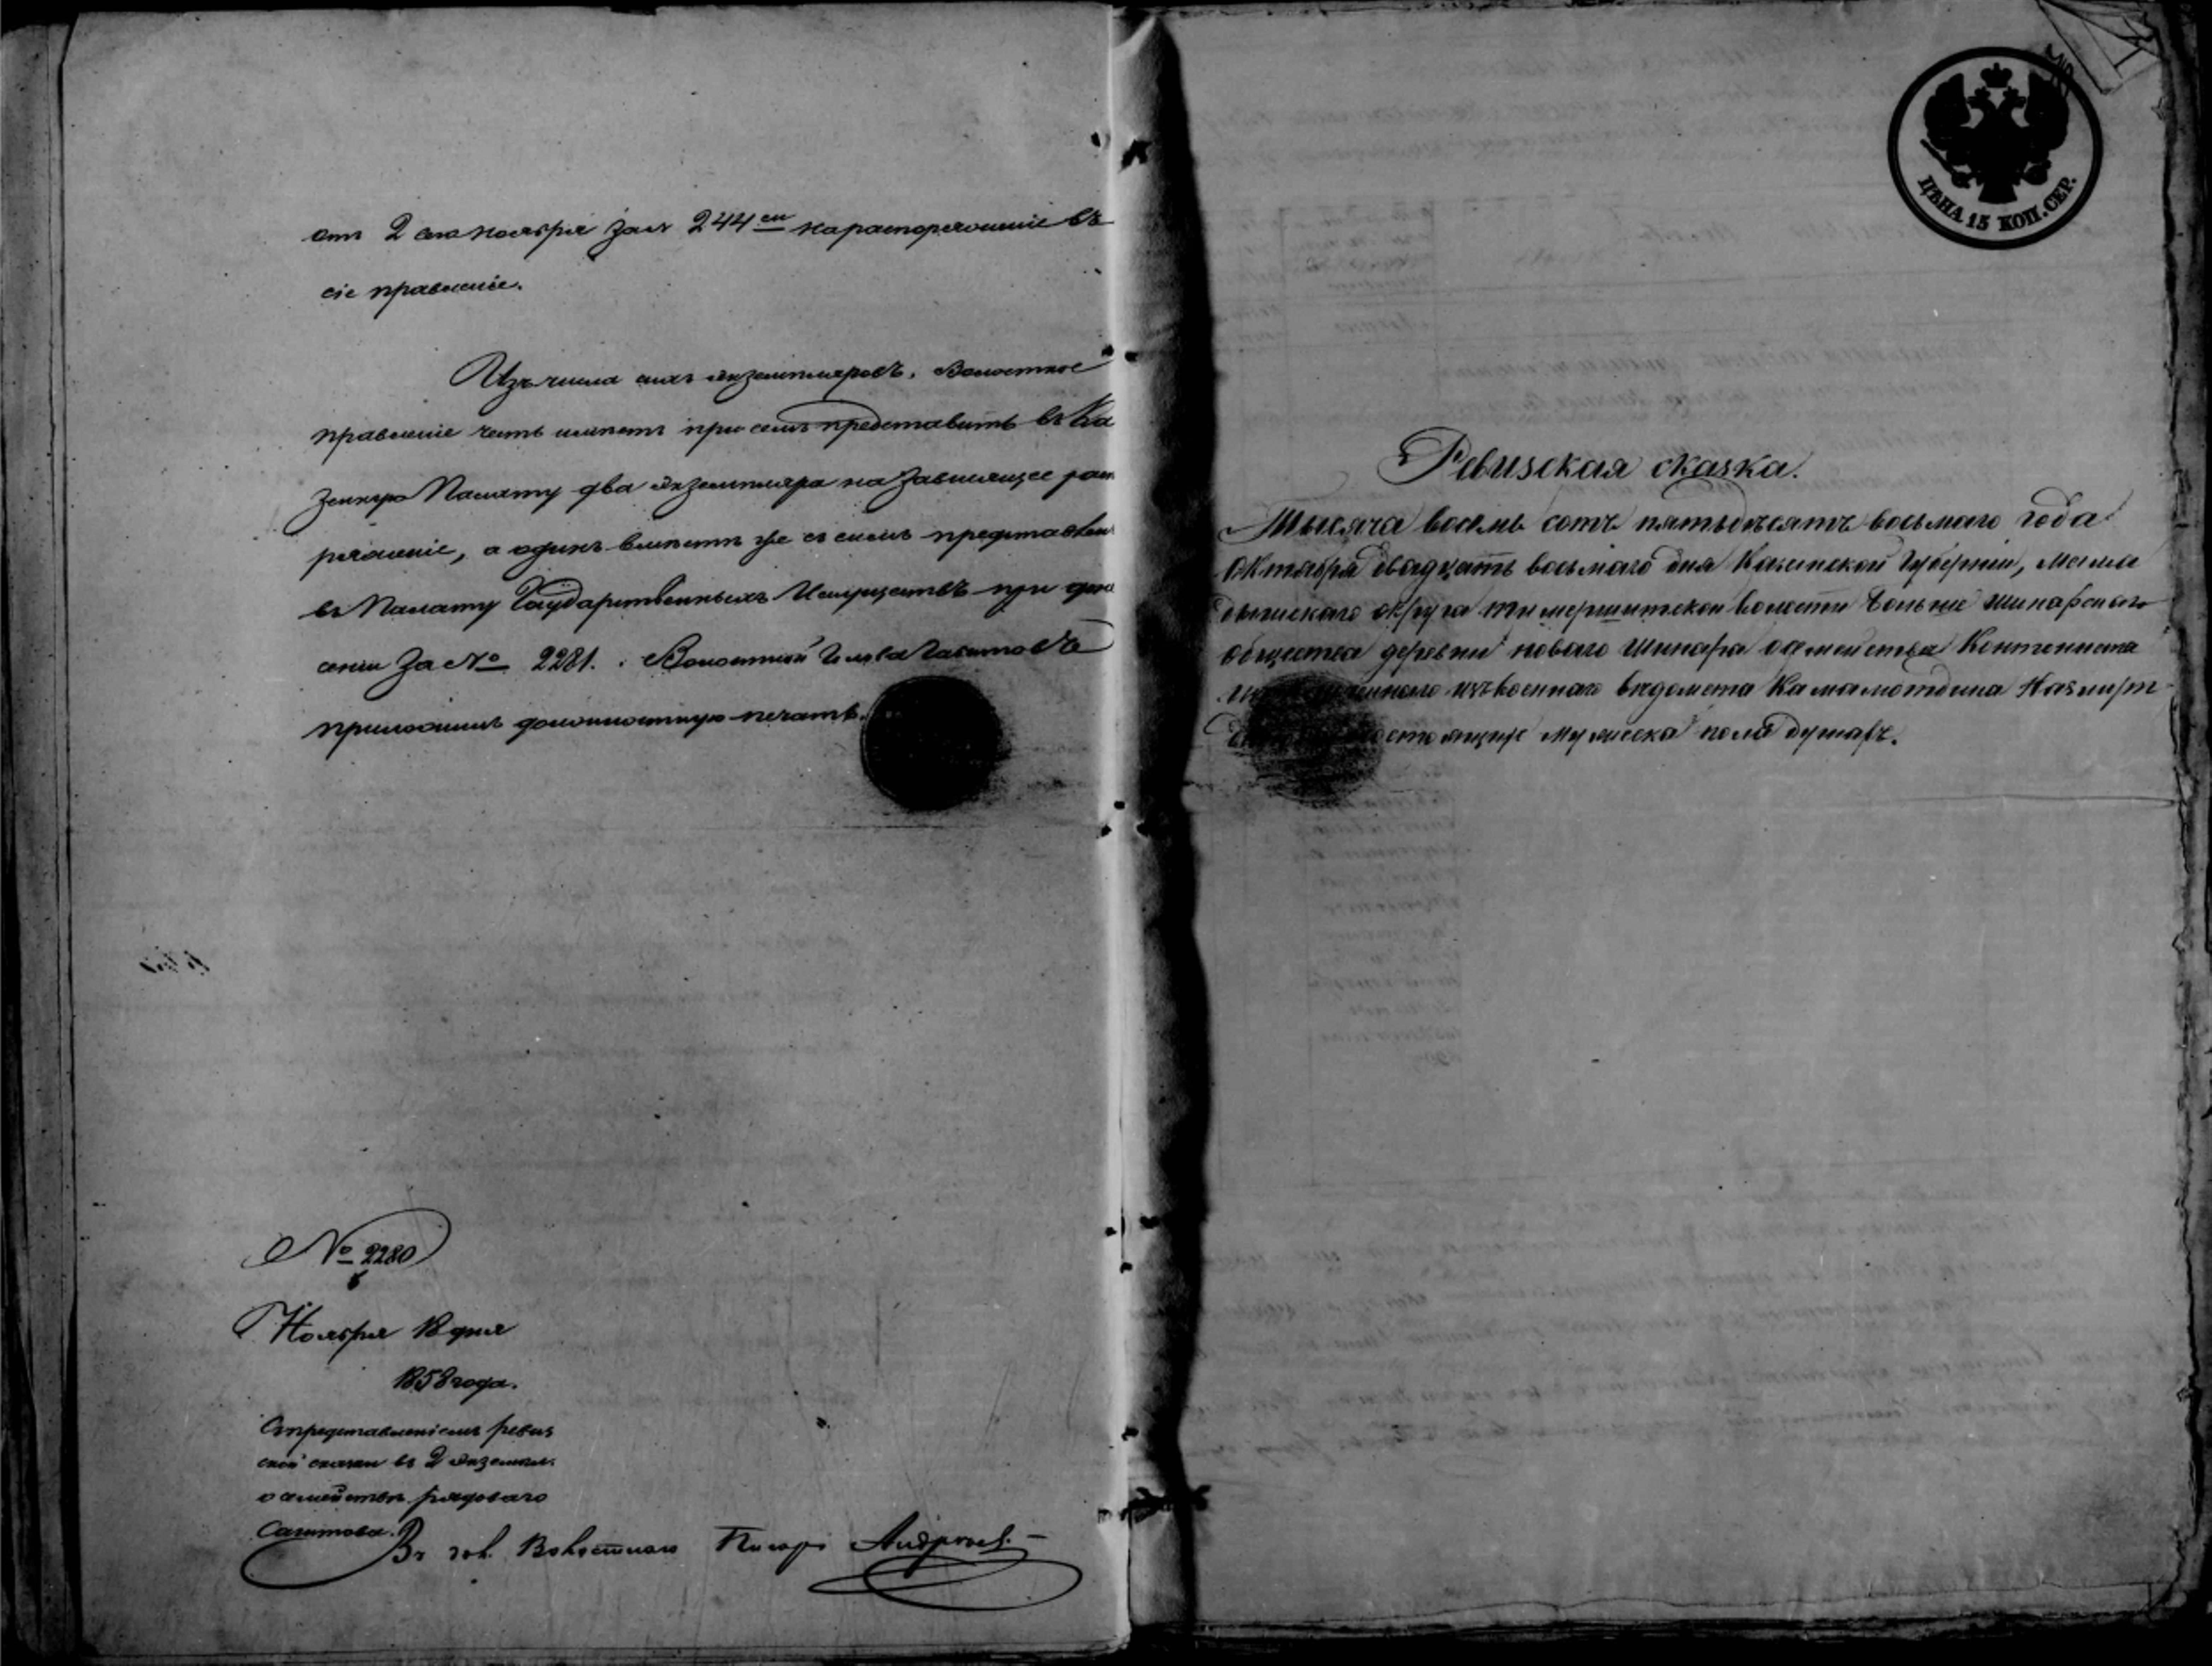 отъ 2 сего Ноября за № 244ем на распоряженіе въ
сіе правленіе.
Изъ числа сихъ экземпляровъ, Волостное
правленіе честь имѣетъ при семъ представить въ Ка
зенную Палату два экземпляра на зависящее рас
ряженіе, а одинъ вмѣстѣ же съ симъ представлен
въ Палату Государственныхъ Имуществъ при доне
сеніи За № 2281. Волостной Голова
приложилъ должностную печать.
№ 2280
Ноября 18 дня
1858 года.
Съ представленіемъ ревиз
ской сказки въ 2 экземпл.
о семействѣ рядоваго
Сагитова.
Волостнаго Писарь Андреевъ
ЦѢНА 15 КОП. СЕР.
Ревизская сказка.
Тысяча восемь сотъ пятьдесятъ восьмаго года
Октября двадцать восьмаго дня Казанской Губерніи, Мама
дышскаго округа волости Больше Шинарскаго
общества деревни новаго Шинара о семейства Контониста
изъ военнаго ведомства
состоящихъ мужеска пола душахъ.